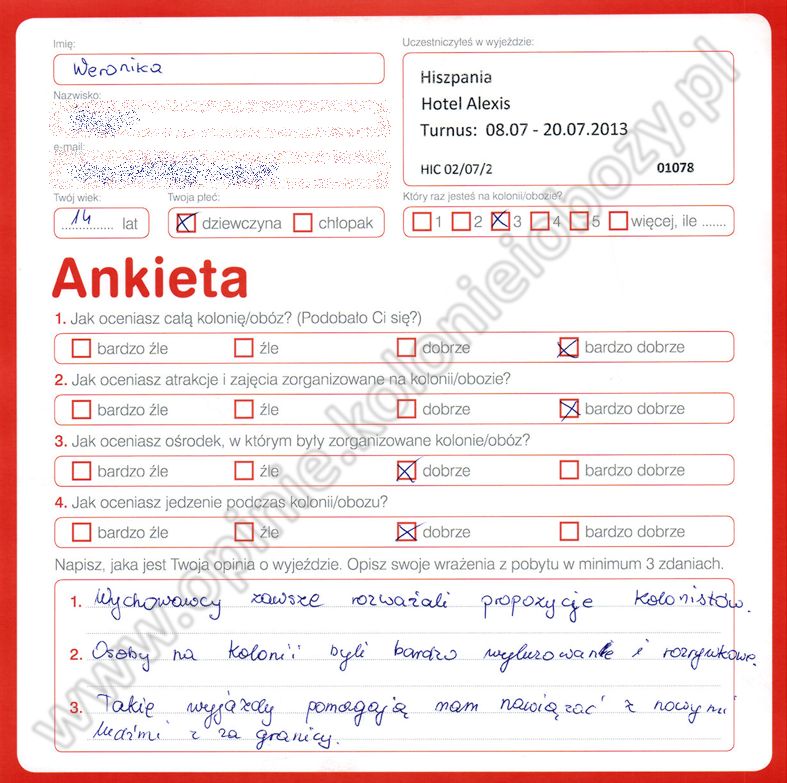 Imię:
Uczestniczyłeś w wyjeździe:
Weronika
Hiszpania
Nazwisko:
Hotel Alexis
Turnus: 08.07 - 20.07.2013
e-mail:
HIC 02/07/2 01078
Twój wiek: Twoja płeć: Który raz jesteś na kolonii/obozie?
14 lat dziewczyna chłopak 1 2 3 4 5 więcej, ile .......
Ankieta
1. Jak oceniasz całą kolonię/obóz? (Podobało Ci się?)
bardzo źle źle dobrze bardzo dobrze
2. Jak oceniasz atrakcje i zajęcia zorganizowane na kolonii/obozie?
bardzo źle źle dobrze bardzo dobrze
3. Jak oceniasz ośrodek, w którym były zorganizowane kolonie/obóz?
bardzo źle źle dobrze bardzo dobrze
4. Jak oceniasz jedzenie podczas kolonii/obozu?
bardzo źle źle dobrze bardzo dobrze
Napisz, jaka jest Twoja opinia o wyjeździe. Opisz swoje wrażenia z pobytu w minimum 3 zdaniach.
1. Wychowawcy zawsze rozważali propozycje kolonistów.
2. Osoby na kolonii byli bardzo wyluzowane i rozrywkowe.
3. Takie wyjazdy pomagają nam nawiązać z nowymi
ludźmi z za granicy.
www.opinie.kolonieiobozy.pl